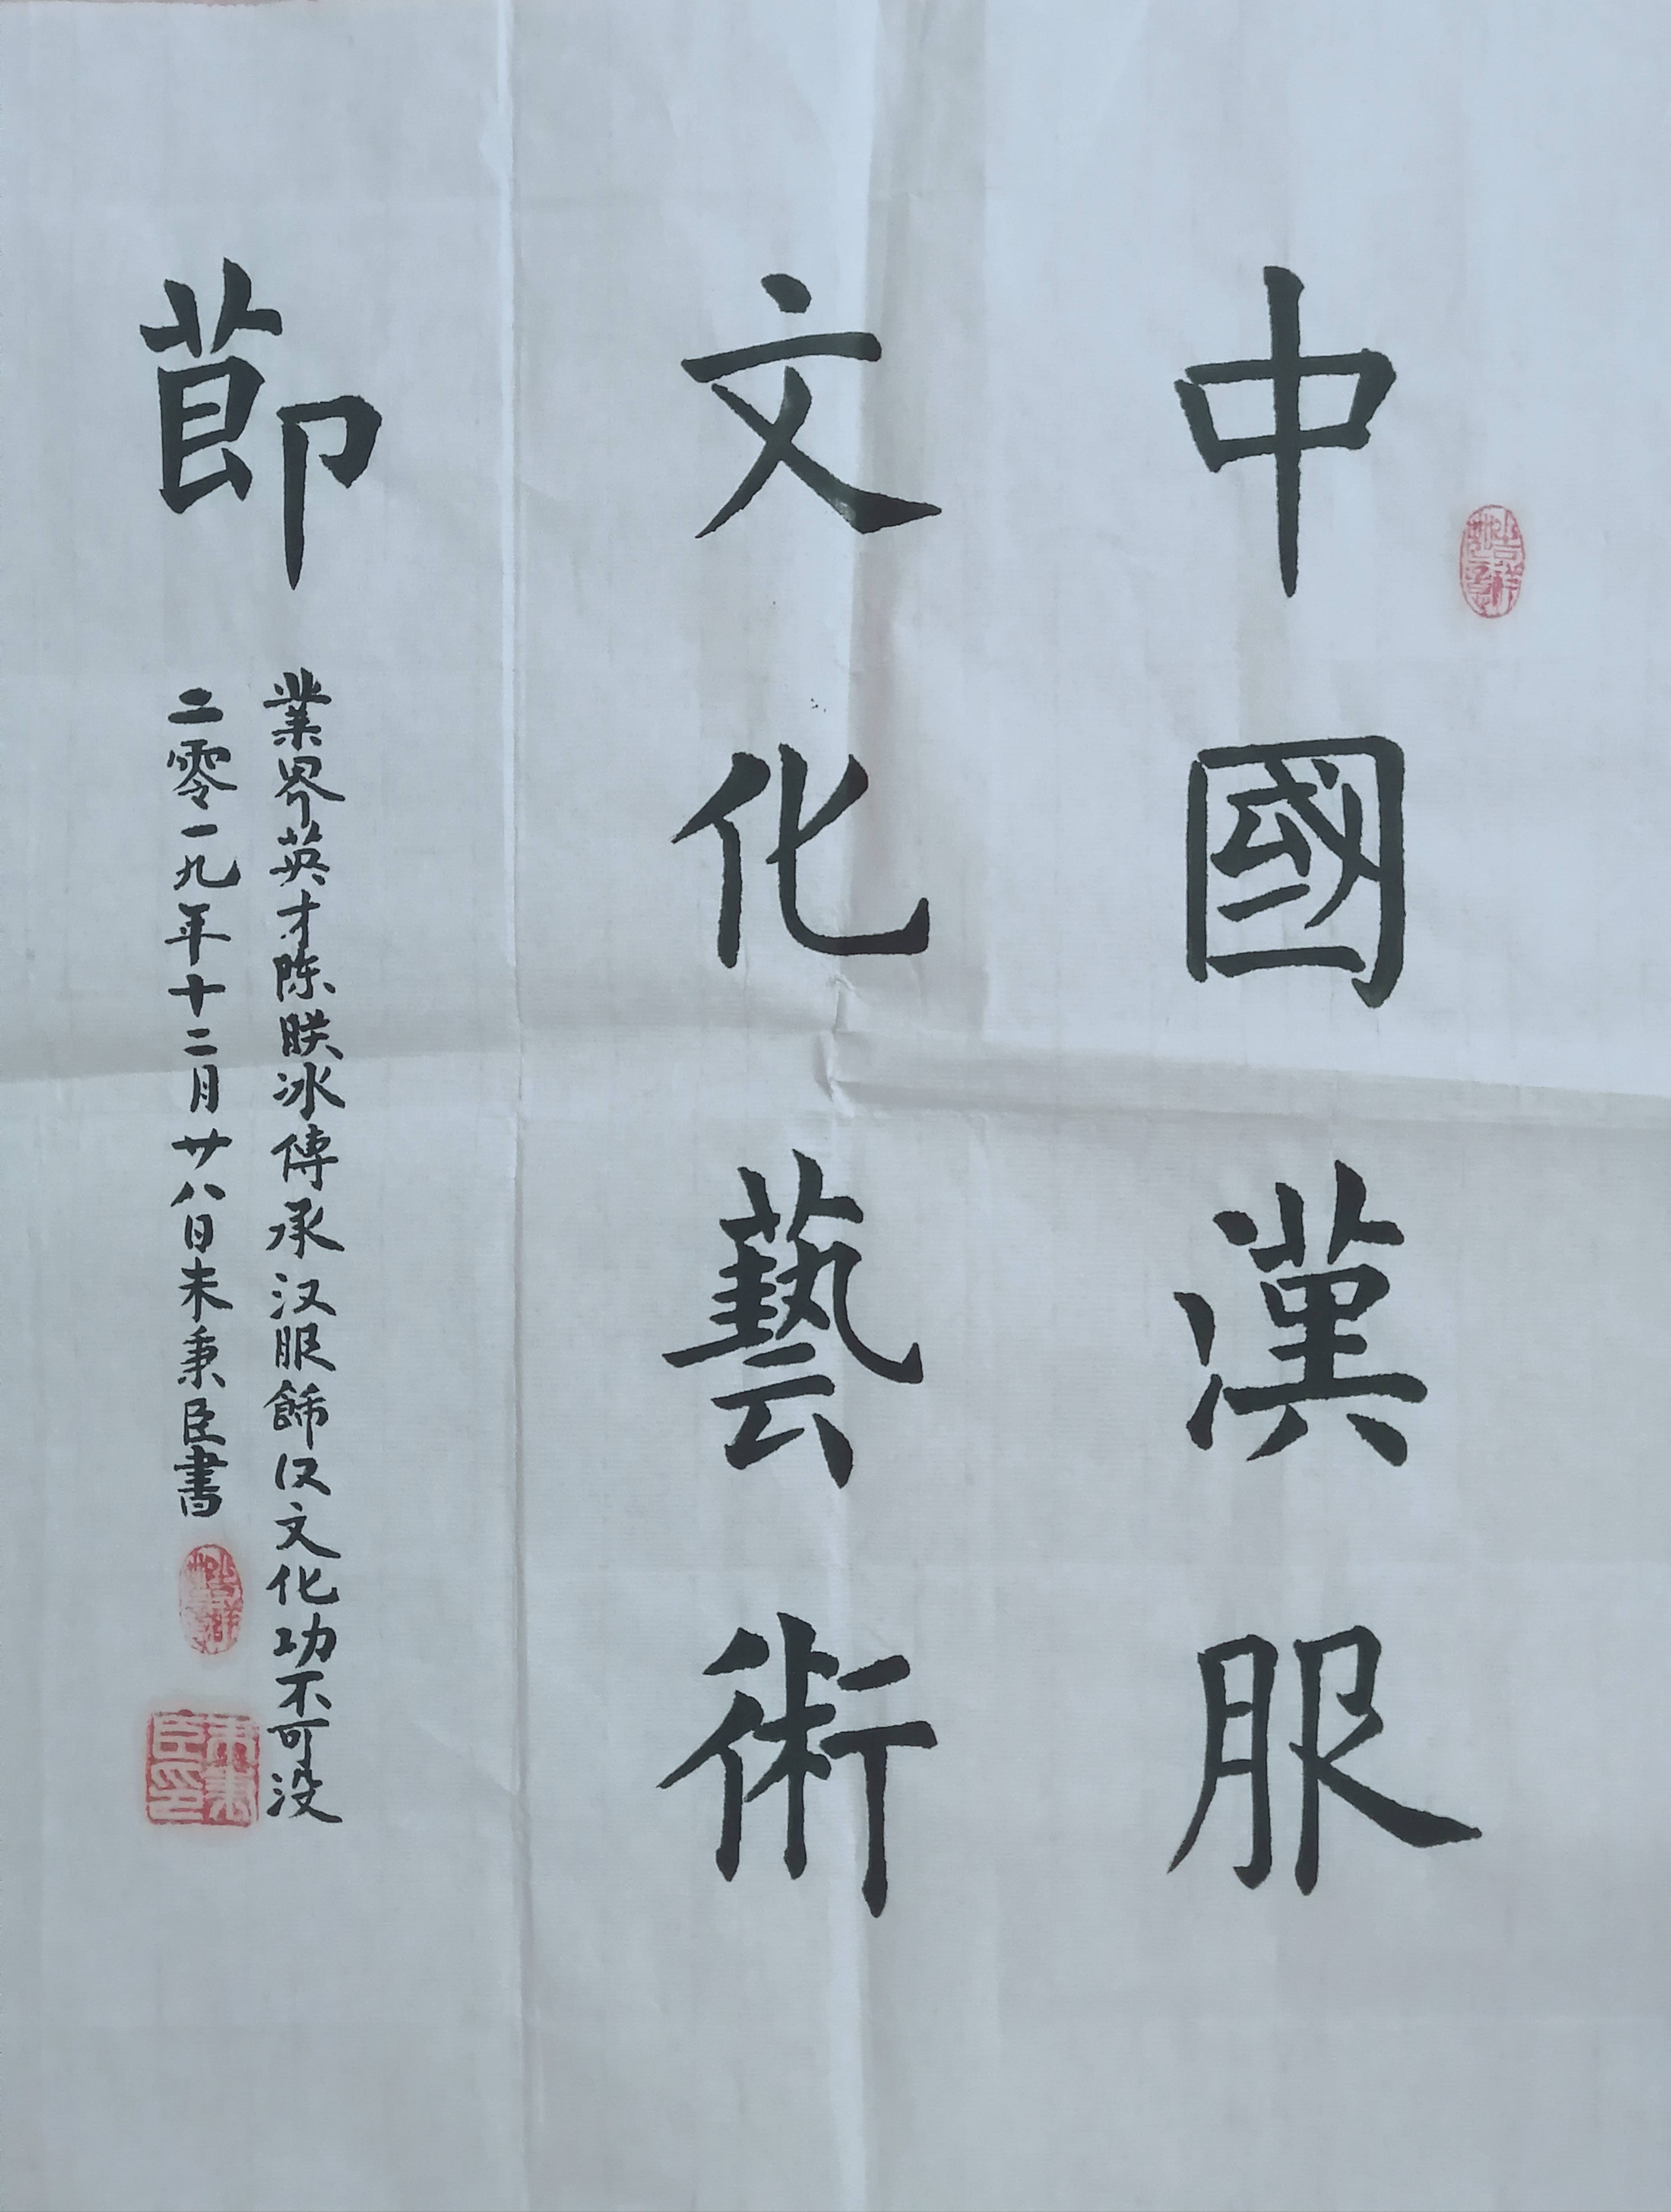 中國漢服
文化藝術
莭
業界英才陈朕冰傳承汉服飾汉文化功不可没
二零一九年十二月廿八日未秉臣書
吉祥
吉祥